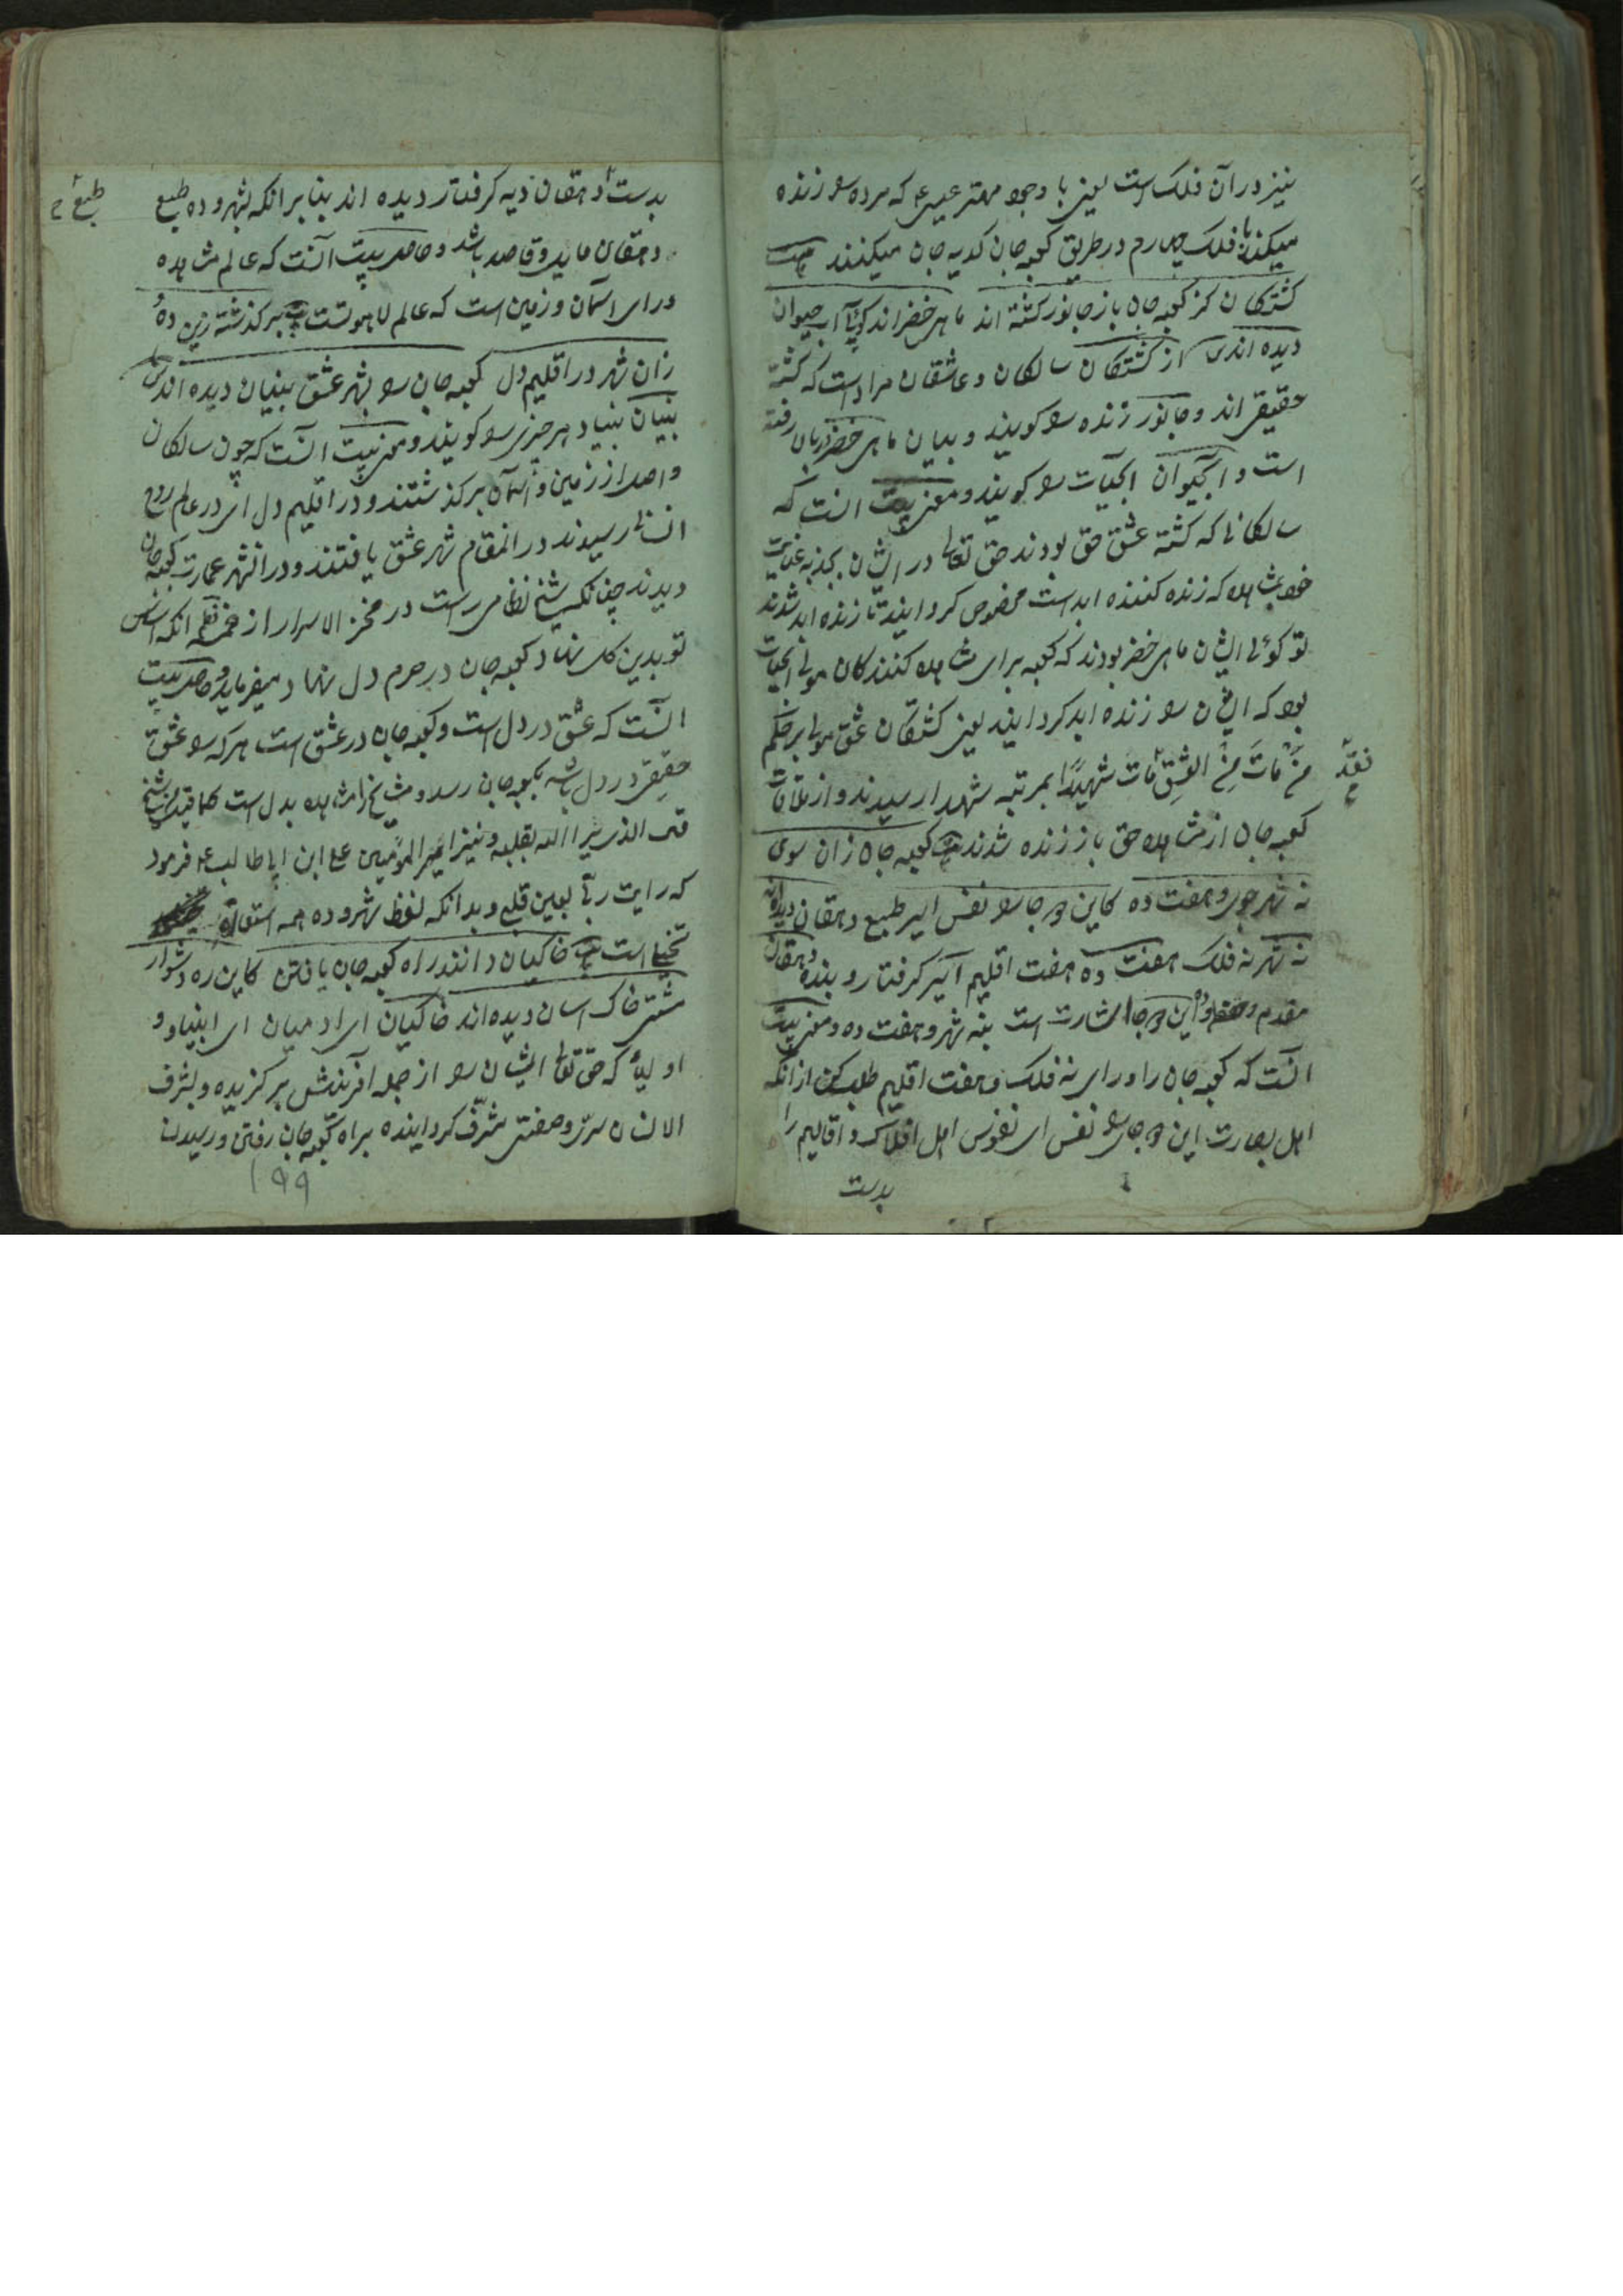 نیز در آن فلک است یعنی با وجود مهتر عیسی ع که مرده را زنده
میکند با فلک چهارم در طریق کعبه جان کدیه جان میکنند بیت
کشتگان کز کعبه جان باز جانور کشته اند ماهی خضراند کوئیا آب حیوان
دیده اند از کشتکان سالکان و عاشقان مراد است که کشته
حقیقی اند و جانور زنده را کویند و بیان ماهی خضر در بالا رفته
است و آبحیوان ابحیات را کویند و معنی بیت انست که
سالکانی که کشته عشق حق بودند حق تعالی در ایشان بجذبه عنایت
خود مشاهده که زنده کننده ابد است مخصوص کردانید تا زنده ابد شدند
تو کوئی ایشان ماهی خضر بودند که کعبه برای مشاهده کنندکان مولی ابحیات
بود که ایشان را زنده ابد کردانید یعنی کشتکان عشق مولی بر حکم
مَنْ مَاتَ مِنَ العِشْقِ مَاتَ شهیدًا بمرتبه شهدا رسیدند و از ملاقات
کعبه جان از مشاهده حق باز زنده شدند بیت کعبه جان زان سوی
نه شهر جوی و هفت ده کاین دو جا را نفس امیر طبع دهقان دیده اند
نه شهر نه فلک هفت ده هفت اقلیم اسیر کرفتار و بنده دهقان
مقدم ده و این دو جا اشارت است بنه شهر و هفت ده و معنی بیت
انست که کعبه جان را ورای نه فلک و هفت اقلیم طلب کن از انکه
اهل بصارت این دو جا را نفس ای نفوس اهل افلاک و اقالیم را
بدست
بدست دهقان دیه کرفتار دیده اند بنا بر انکه بشهر و ده طبع
دهقان مایل و قاصد باشد و حاصل بیت آنست که عالم مشاهده
ورای اسمان و زمین است که عالم لاهوتست بیت بر کذشته زین ده و
زان شهر در اقلیم دل کعبه جان را بشهر عشق بنیان دیده اند
بنیان بنیاد هر چیزی را کویند و معنی بیت انست که چون سالکان
واصل از زمین و اسمان بر کذشتند و در اقلیم دل ای در عالم روح
انسانی رسیدند در انمقام شهر عشق یافتند و در انشهر عمارت کعبه جان
دیدند چنانکه شیخ نظامی راست در مخزن الاسرار از خمسه نظم انکه اساس
تو بدین کل نهاد کعبه جان در حرم دل نهاد میفرماید و حاصل بیت
انست که عشق در دل است و کعبه جان در عشق است هر که را عشق
حقیقی در دل باشد بکعبه جان رسد و مشایخ را مشاهده بدل است کما قیل من شیخ
قلب الذی یرا الله بقلبه و نیز امیر المؤمنین علی ابن ابی طالب ع فرمود
که رایت ربی بعین قلبی و بدانکه لفظ شهر و ده همه استعاره
تخییل است بیت خاکیان دانند راه کعبه جان یافتن کاین ره دشوار
مشتی خاک اسان دیده اند خاکیان ای ادمیان ای انبیاء و
اولیاء که حق تعالی ایشان را از جمله افرینش بر کزیده و بشرف
الانسان سرّی و صفتی مشرّف کردانیده براه کعبه جان رفتن و رسیدن
۱۹۹
طبع